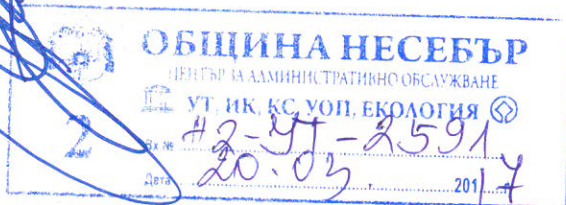 ОБЩИНА НЕСЕБЪР
ЦЕНТЪР ЗА АДМИНИСТРАТИВНО ОБСЛУЖВАНЕ
УТ, ИК, КС, УОП, ЕКОЛОГИЯ
2
Вх № Н2-УТ-2591
Дата 20.03. 2017